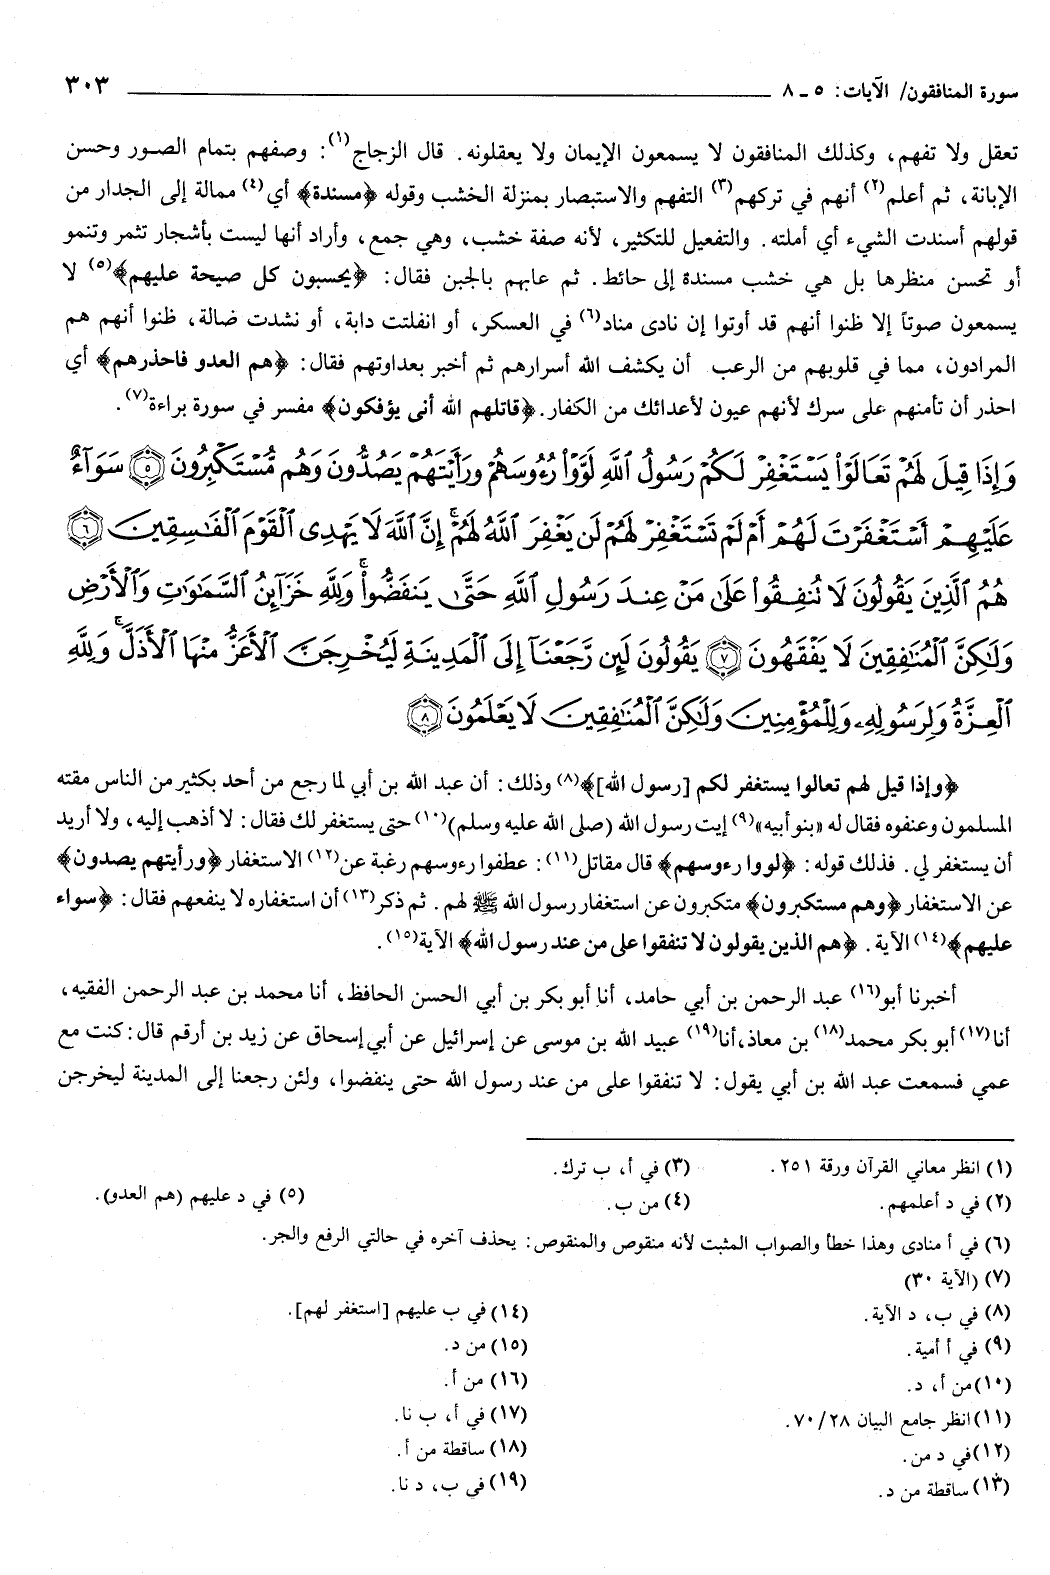 سورة المنافقون/ الآيات: ٥ ـ ٨ ٣٠٣
تعقل ولا تفهم، وكذلك المنافقون لا يسمعون الإيمان ولا يعقلونه. قال الزجاج(١): وصفهم بتمام الصور وحسن
الإبانة، ثم أعلم(٢) أنهم في تركهم(٣) التفهم والاستبصار بمنزلة الخشب وقوله ﴿مسندة﴾ أي(٤) ممالة إلى الجدار من
قولهم أسندت الشيء أي أملته. والتفعيل للتكثير، لأنه صفة خشب، وهي جمع، وأراد أنها ليست بأشجار تثمر وتنمو
أو تحسن منظرها بل هي خشب مسندة إلى حائط. ثم عابهم بالجبن فقال: ﴿يحسبون كل صيحة عليهم﴾(٥) لا
يسمعون صوتاً إلا ظنوا أنهم قد أوتوا إن نادى مناد(٦) في العسكر، أو انفلتت دابة، أو نشدت ضالة، ظنوا أنهم هم
المرادون، مما في قلوبهم من الرعب أن يكشف الله أسرارهم ثم أخبر بعداوتهم فقال: ﴿هم العدو فاحذرهم﴾ أي
احذر أن تأمنهم على سرك لأنهم عيون لأعدائك من الكفار. ﴿قاتلهم الله أنى يؤفكون﴾ مفسر في سورة براءة(٧).
وَإِذَا قِيلَ لَهُمْ تَعَالَوْا۟ يَسْتَغْفِرْ لَكُمْ رَسُولُ ٱللَّهِ لَوَّوْا۟ رُءُوسَهُمْ وَرَأَيْتَهُمْ يَصُدُّونَ وَهُم مُّسْتَكْبِرُونَ ٥ سَوَآءٌ
عَلَيْهِمْ أَسْتَغْفَرْتَ لَهُمْ أَمْ لَمْ تَسْتَغْفِرْ لَهُمْ لَن يَغْفِرَ ٱللَّهُ لَهُمْ ۚ إِنَّ ٱللَّهَ لَا يَهْدِى ٱلْقَوْمَ ٱلْفَـٰسِقِينَ ٦
هُمُ ٱلَّذِينَ يَقُولُونَ لَا تُنفِقُوا۟ عَلَىٰ مَنْ عِندَ رَسُولِ ٱللَّهِ حَتَّىٰ يَنفَضُّوا۟ ۗ وَلِلَّهِ خَزَآئِنُ ٱلسَّمَـٰوَٰتِ وَٱلْأَرْضِ
وَلَـٰكِنَّ ٱلْمُنَـٰفِقِينَ لَا يَفْقَهُونَ ٧ يَقُولُونَ لَئِن رَّجَعْنَآ إِلَى ٱلْمَدِينَةِ لَيُخْرِجَنَّ ٱلْأَعَزُّ مِنْهَا ٱلْأَذَلَّ ۚ وَلِلَّهِ
ٱلْعِزَّةُ وَلِرَسُولِهِۦ وَلِلْمُؤْمِنِينَ وَلَـٰكِنَّ ٱلْمُنَـٰفِقِينَ لَا يَعْلَمُونَ ٨
﴿وإذا قيل لهم تعالوا يستغفر لكم [رسول الله]﴾(٨) وذلك: أن عبد الله بن أبي لما رجع من أحد بكثير من الناس مقته
المسلمون وعنفوه فقال له «بنو أبيه»(٩) إيت رسول الله (صلى الله عليه وسلم)(١٠) حتى يستغفر لك فقال: لا أذهب إليه، ولا أريد
أن يستغفر لي. فذلك قوله: ﴿لووا رءوسهم﴾ قال مقاتل(١١): عطفوا رءوسهم رغبة عن(١٢) الاستغفار ﴿ورأيتهم يصدون﴾
عن الاستغفار ﴿وهم مستكبرون﴾ متكبرون عن استغفار رسول الله ﷺ لهم. ثم ذكر(١٣) أن استغفاره لا ينفعهم فقال: ﴿سواء
عليهم﴾(١٤) الآية. ﴿هم الذين يقولون لا تنفقوا على من عند رسول الله﴾ الآية(١٥).
أخبرنا أبو(١٦) عبد الرحمن بن أبي حامد، أنا أبو بكر بن أبي الحسن الحافظ، أنا محمد بن عبد الرحمن الفقيه،
أنا(١٧) أبو بكر محمد(١٨) بن معاذ، أنا(١٩) عبيد الله بن موسى عن إسرائيل عن أبي إسحاق عن زيد بن أرقم قال: كنت مع
عمي فسمعت عبد الله بن أبي يقول: لا تنفقوا على من عند رسول الله حتى ينفضوا، ولئن رجعنا إلى المدينة ليخرجن
(١) انظر معاني القرآن ورقة ٢٥١. (٣) في أ، ب ترك.
(٢) في د أعلمهم. (٤) من ب. (٥) في د عليهم (هم العدو).
(٦) في أ منادى وهذا خطأ والصواب المثبت لأنه منقوص والمنقوص: يحذف آخره في حالتي الرفع والجر.
(٧) (الآية ٣٠)
(٨) في ب، د الآية. (١٤) في ب عليهم [استغفر لهم].
(٩) في أ أمية. (١٥) من د.
(١٠) من أ، د. (١٦) من أ.
(١١) انظر جامع البيان ٧٠/٢٨. (١٧) في أ، ب نا.
(١٢) في د من. (١٨) ساقطة من أ.
(١٣) ساقطة من د. (١٩) في ب، د نا.